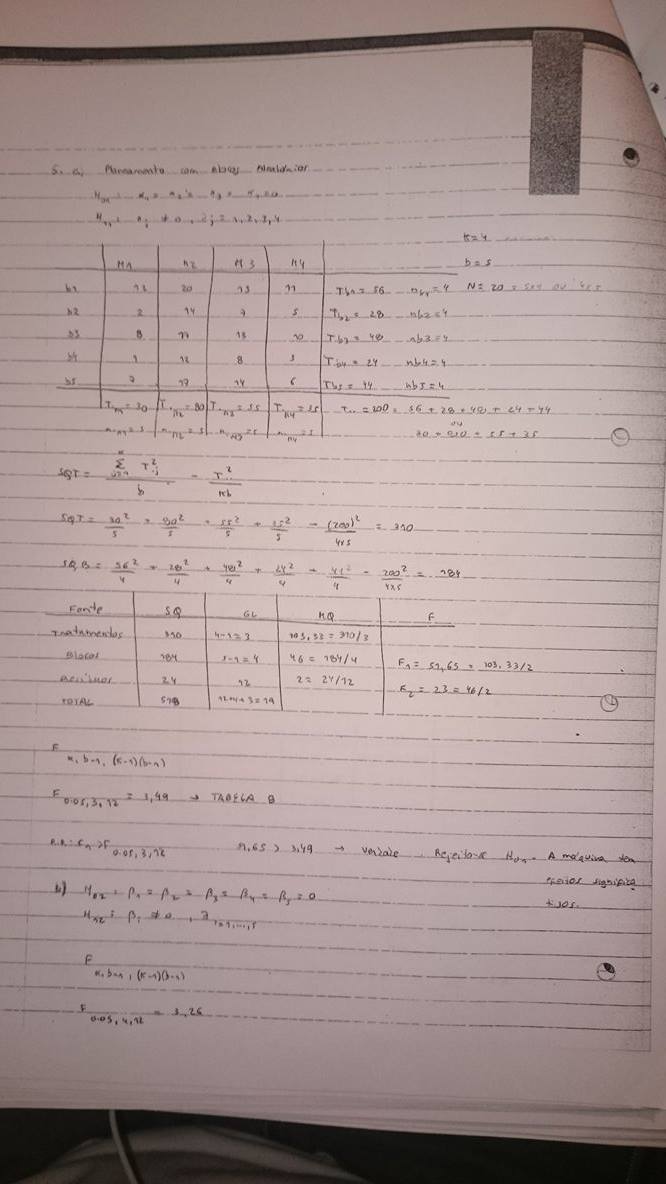 5. a) Planeamento com blocos aleatórios
H01: α1 = α2 = α3 = α4 = 0
H11: αj ≠ 0, ∃j = 1, 2, 3, 4
k=4
M1 M2 M3 M4 b=5
b1 12 20 13 11 Tb1 = 56 nb1 = 4 N = 20 = 5x4 ou 4x5
b2 2 14 7 5 Tb2 = 28 nb2 = 4
b3 8 17 13 10 Tb3 = 48 nb3 = 4
b4 1 12 8 3 Tb4 = 24 nb4 = 4
b5 7 17 14 6 Tb5 = 44 nb5 = 4
T.M1 = 30 T.M2 = 80 T.M3 = 55 T.M4 = 35 T.. = 200 = 56 + 28 + 48 + 24 + 44
n.M1 = 5 n.M2 = 5 n.M3 = 5 n.M4 = 5 ou 30 + 80 + 55 + 35
SQT = Σ T².j / b - T..² / kb
SQT = 30²/5 + 80²/5 + 55²/5 + 35²/5 - (200)²/4x5 = 310
SQB = 56²/4 + 28²/4 + 48²/4 + 24²/4 + 44²/4 - 200²/4x5 = 184
Fonte SQ GL MQ F
Tratamentos 310 4-1=3 103,33 = 310/3
Blocos 184 5-1=4 46 = 184/4 F1 = 51,65 = 103,33/2
Resíduos 24 12 2 = 24/12 F2 = 23 = 46/2
TOTAL 518 12+4+3=19
F α, b-1, (k-1)(b-1)
F 0.05, 3, 12 = 3,49 → TABELA 8
R.R: F1 > F 0.05, 3, 12 51,65 > 3,49 → Verdade. Rejeita-se H01. A máquina tem
efeitos significa
tivos.
b) H02: β1 = β2 = β3 = β4 = β5 = 0
H12: βi ≠ 0, ∃ i=1,...,5
F α, b-1, (k-1)(b-1)
F 0.05, 4, 12 = 3,26